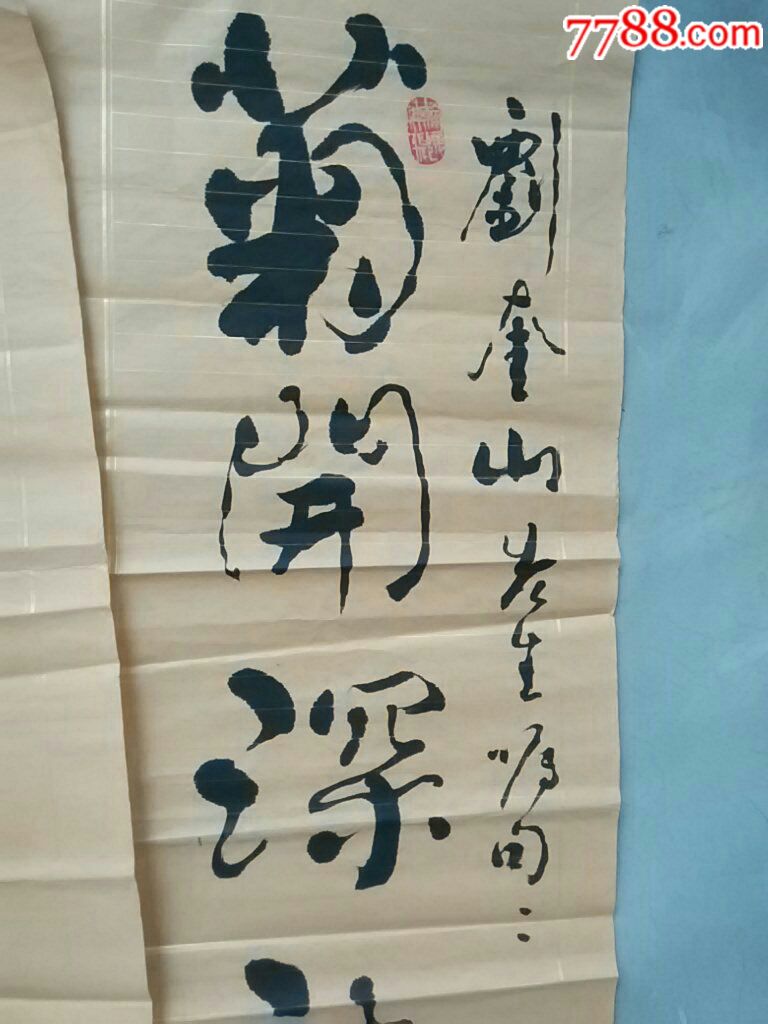 7788.com
劉奎山先生嘱句
菊開深